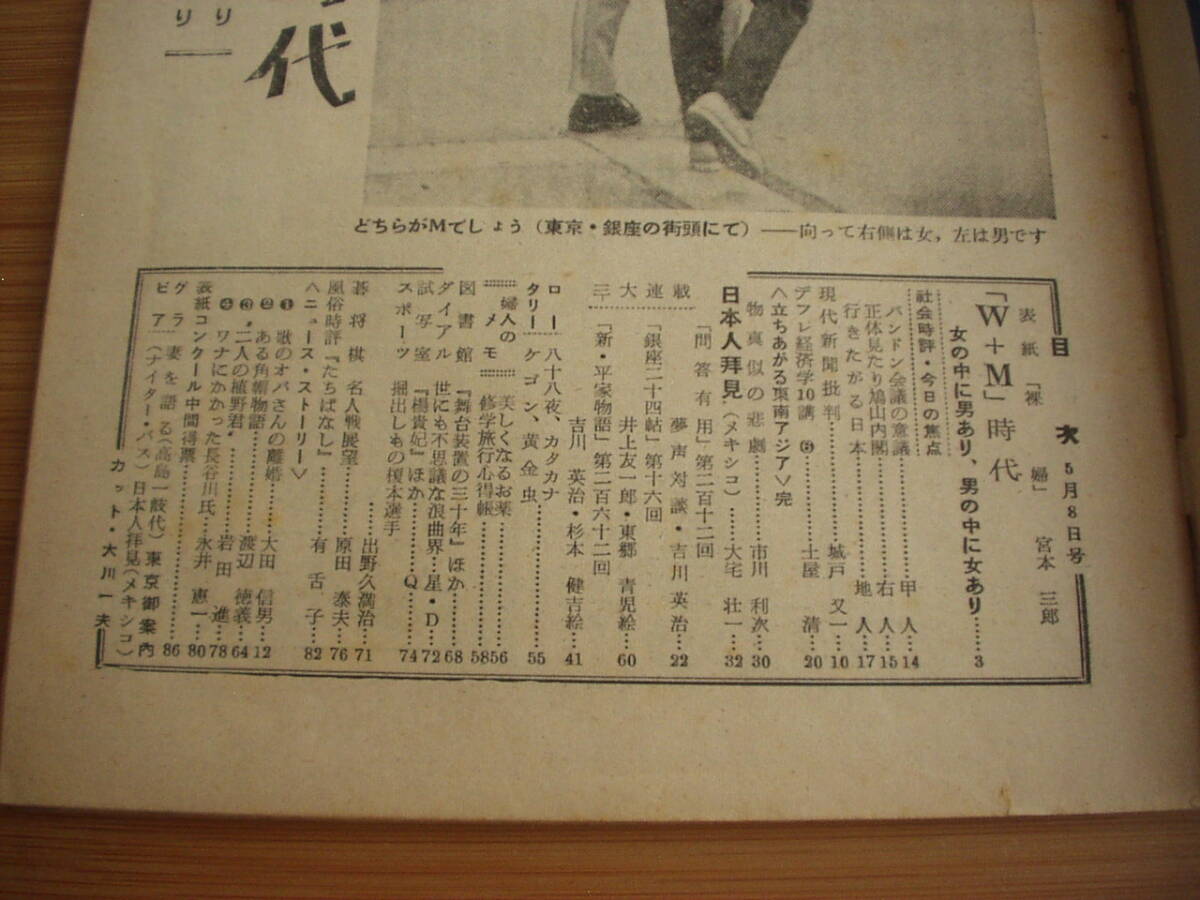 代
り
り
どちらがMでしょう（東京・銀座の街頭にて）――向って右側は女，左は男です
目次 5月8日号
表紙「裸婦」 宮本三郎
「W+M」時代
女の中に男あり、男の中に女あり……3
社会時評・今日の焦点
バンドン会議の意議……甲人…14
正体見たり鳩山内閣……右人…15
行きたがる日本……地人…17
現代新聞批判……城戸又一…10
デフレ経済学10講 ⑥……土屋清…20
〈立ちあがる東南アジア〉完
物真似の悲劇……市川利次…30
日本人拝見（メキシコ）……大宅壮一…32
三大連載
「問答有用」第二百十二回
夢声対談・吉川英治……22
「銀座二十四帖」第十六回
井上友一郎・東郷青児絵……60
「新・平家物語」第二百六十二回
吉川英治・杉本健吉絵……41
ロータリー
八十八夜、カタカナ
ケゴン、黄金虫……55
婦人のメモ
美しくなるお薬……56
修学旅行心得帳……58
図書館『舞台装置の三十年』ほか……68
ダイアル 世にも不思議な浪曲界…星・D…72
試写室『楊貴妃』ほか……Q…74
スポーツ 掘出しもの榎本選手
碁将棋 名人戦展望……出野久満治…71
風俗時評『たちばなし』……原田泰夫…76
〈ニュース・ストーリー〉……有舌子…82
❶ 歌のオバさんの離婚……大田信男…12
❷ ある角帽物語……渡辺徳義…64
❸ 二人の植野君……岩田進…78
❹ ワナにかかった長谷川氏…永井恵一…80
表紙コンクール中間得票……86
グラビア
妻を語る（高島一䯊代）東京御案内
（ナイター・バス）日本人拝見（メキシコ）
カット・大川一夫